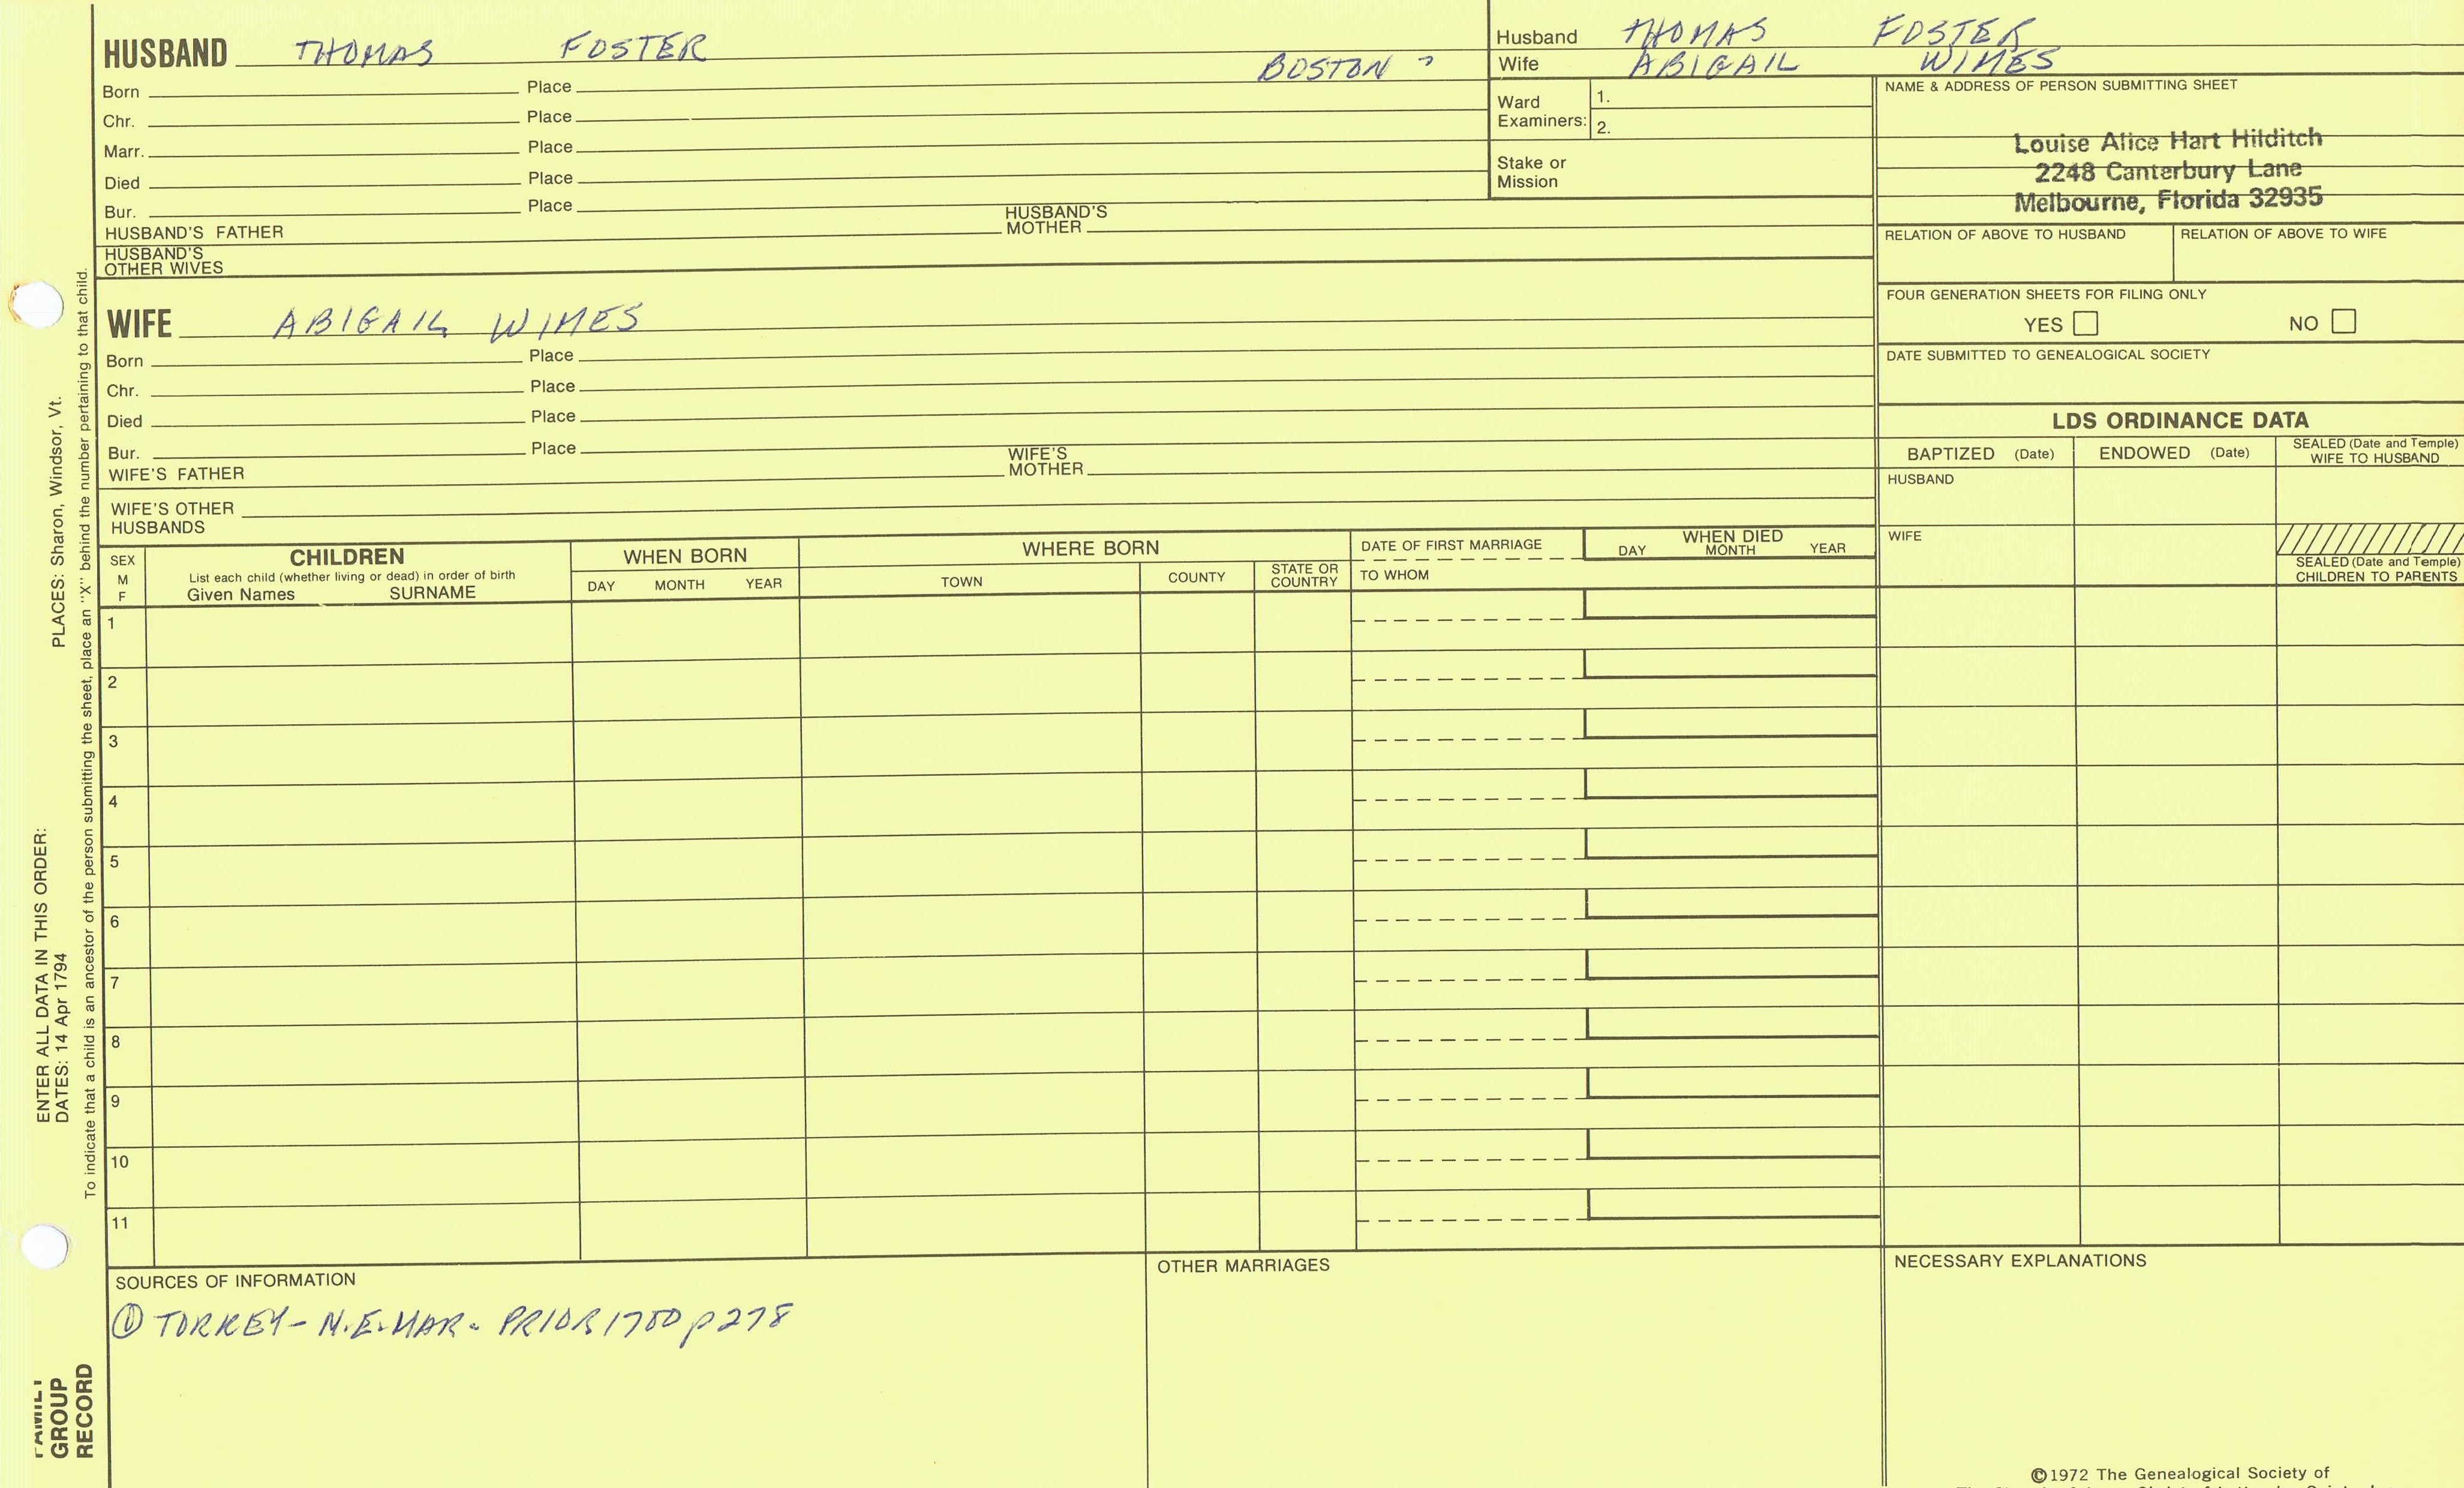 HUSBAND THOMAS FOSTER
BOSTON ?
Born Place
Chr. Place
Marr. Place
Died Place
Bur. Place
HUSBAND'S FATHER HUSBAND'S MOTHER
HUSBAND'S OTHER WIVES
Husband THOMAS FOSTER
Wife ABIGAIL WIMES
Ward Examiners: 1.
2.
Stake or Mission
NAME & ADDRESS OF PERSON SUBMITTING SHEET
Louise Alice Hart Hilditch
2248 Canterbury Lane
Melbourne, Florida 32935
RELATION OF ABOVE TO HUSBAND RELATION OF ABOVE TO WIFE
FOUR GENERATION SHEETS FOR FILING ONLY
YES NO
DATE SUBMITTED TO GENEALOGICAL SOCIETY
WIFE ABIGAIL WIMES
Born Place
Chr. Place
Died Place
Bur. Place
WIFE'S FATHER WIFE'S MOTHER
WIFE'S OTHER HUSBANDS
LDS ORDINANCE DATA
BAPTIZED (Date) ENDOWED (Date) SEALED (Date and Temple) WIFE TO HUSBAND
HUSBAND
WIFE
SEALED (Date and Temple) CHILDREN TO PARENTS
SEX M F
CHILDREN
List each child (whether living or dead) in order of birth
Given Names SURNAME
WHEN BORN
DAY MONTH YEAR
WHERE BORN
TOWN COUNTY STATE OR COUNTRY
DATE OF FIRST MARRIAGE
TO WHOM
WHEN DIED
DAY MONTH YEAR
1
2
3
4
5
6
7
8
9
10
11
SOURCES OF INFORMATION
① TORREY - N.E. MAR. PRIOR 1700 p 278
OTHER MARRIAGES
NECESSARY EXPLANATIONS
©1972 The Genealogical Society of
PLACES: Sharon, Windsor, Vt.
ENTER ALL DATA IN THIS ORDER:
DATES: 14 Apr 1794
To indicate that a child is an ancestor of the person submitting the sheet, place an "X" behind the number pertaining to that child.
FAMILY
GROUP
RECORD